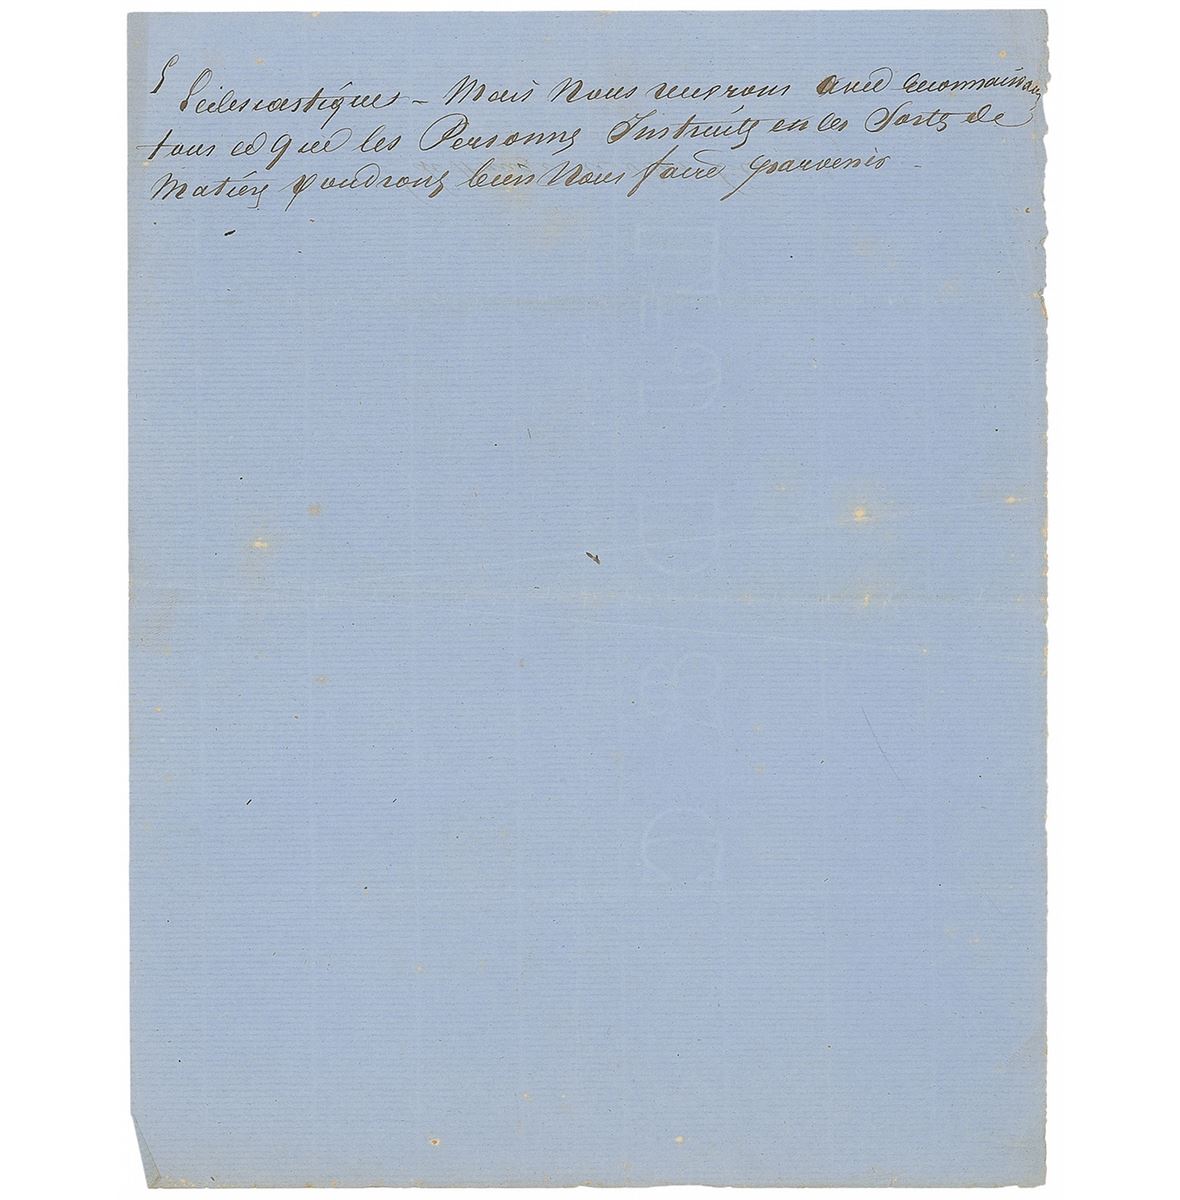 Ecclesiastiques - Mais Nous recevrons avec reconnaissance
tous ce que les Personnes Instruits en ces Sortes de
Matières voudrons bien Nous faire parvenir -